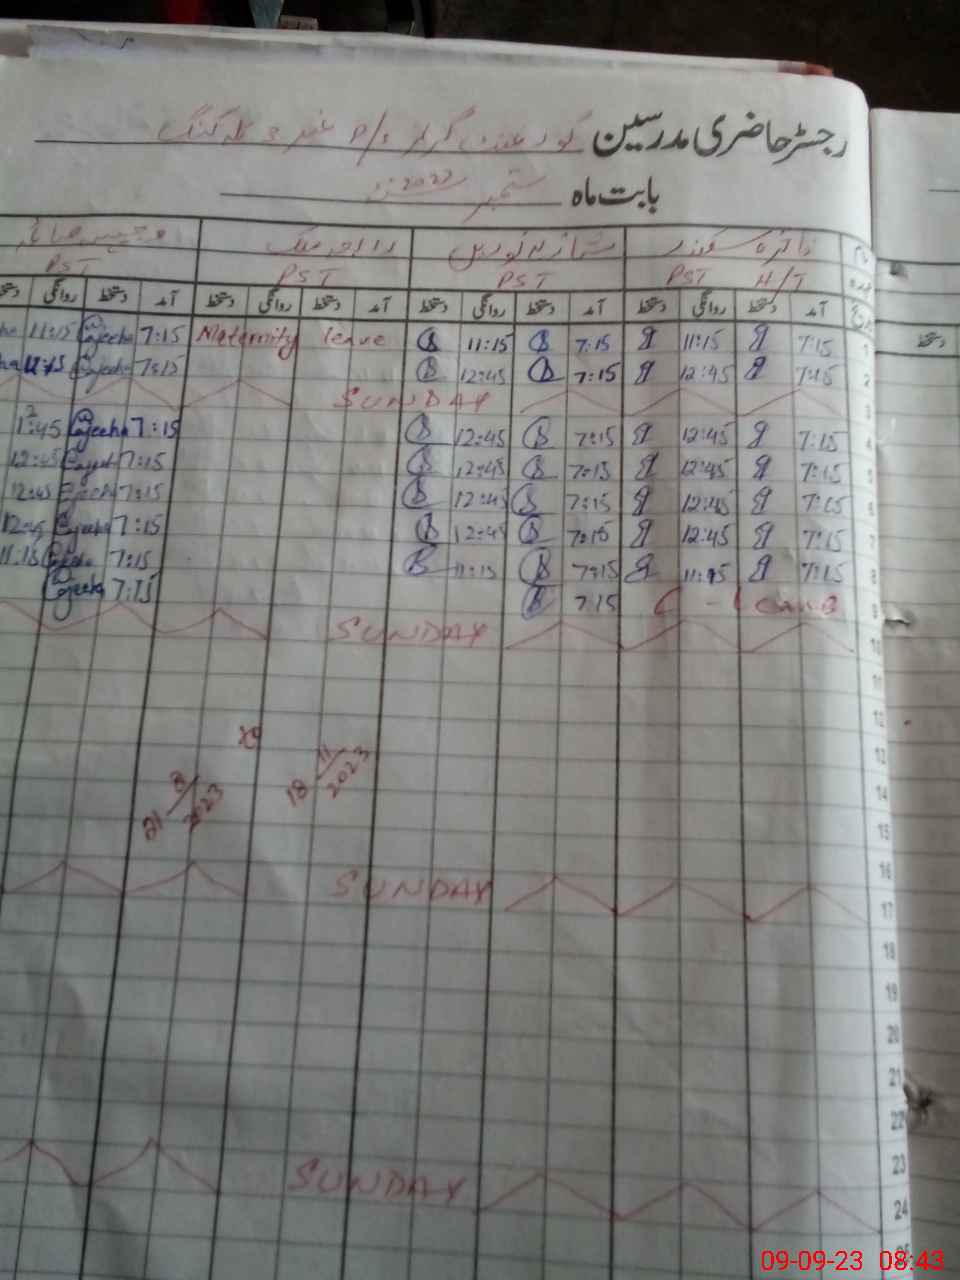 رجسٹر حاضری مدرسین گورنمنٹ گرلز P/S نمبر 3
بابت ماہ ستمبر 2023
PST H/T PST PST PST
آمد دستخط روانگی دستخط آمد دستخط روانگی دستخط آمد دستخط روانگی دستخط آمد دستخط روانگی دستخط
1 7:15 11:15 7:15 11:15 Maternity leave 7:15 11:15
2 7:15 12:45 7:15 12:45 7:15 11:15
3 SUNDAY
4 7:15 12:45 7:15 12:45 7:15 12:45
5 7:15 12:45 7:15 12:45 7:15 12:45
6 7:15 12:45 7:15 12:45 7:15 12:45
7 7:15 12:45 7:15 12:45 7:15 12:45
8 7:15 11:15 7:15 11:15 7:15 11:15
9 C-Leave 7:15 7:15
10 SUNDAY
11
12
13
21/8/2023 18/11/2023
14
15
16
17 SUNDAY
18
19
20
21
22
23
24 SUNDAY
25
دستخط
09-09-23 08:43